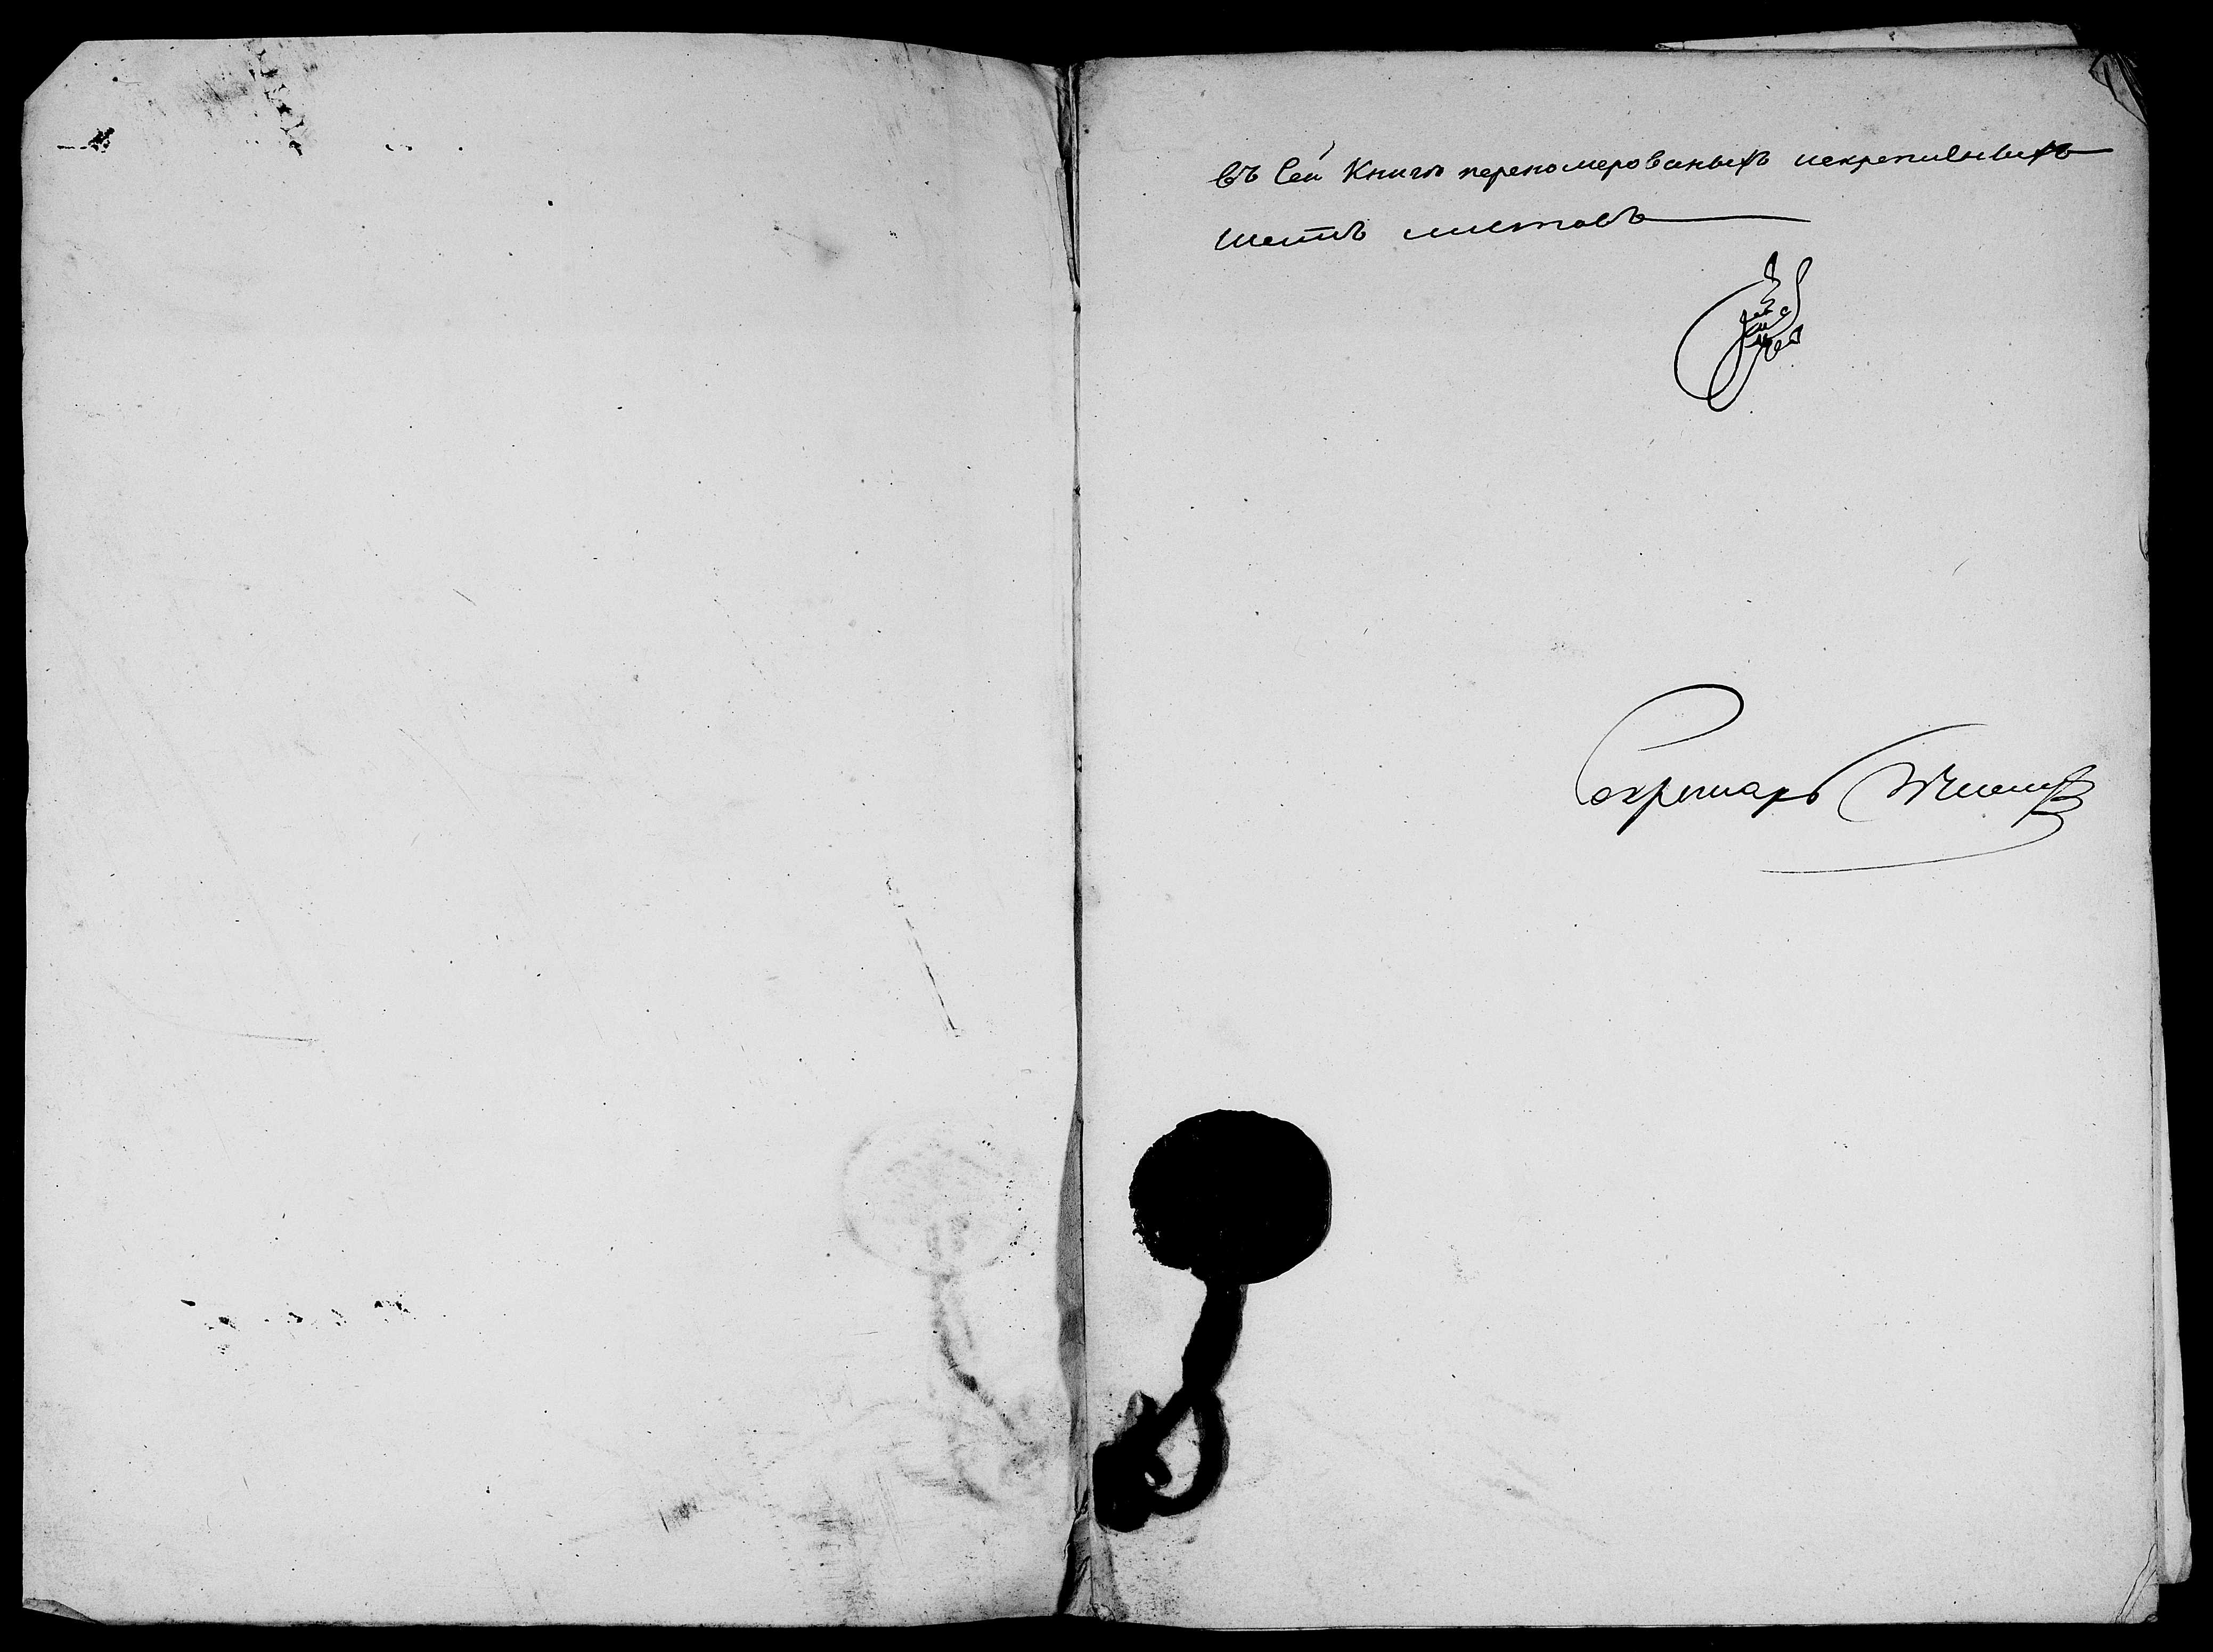 въ сей Книгѣ переномерованыхъ искрепленыхъ
шесть листовъ
Секретарь